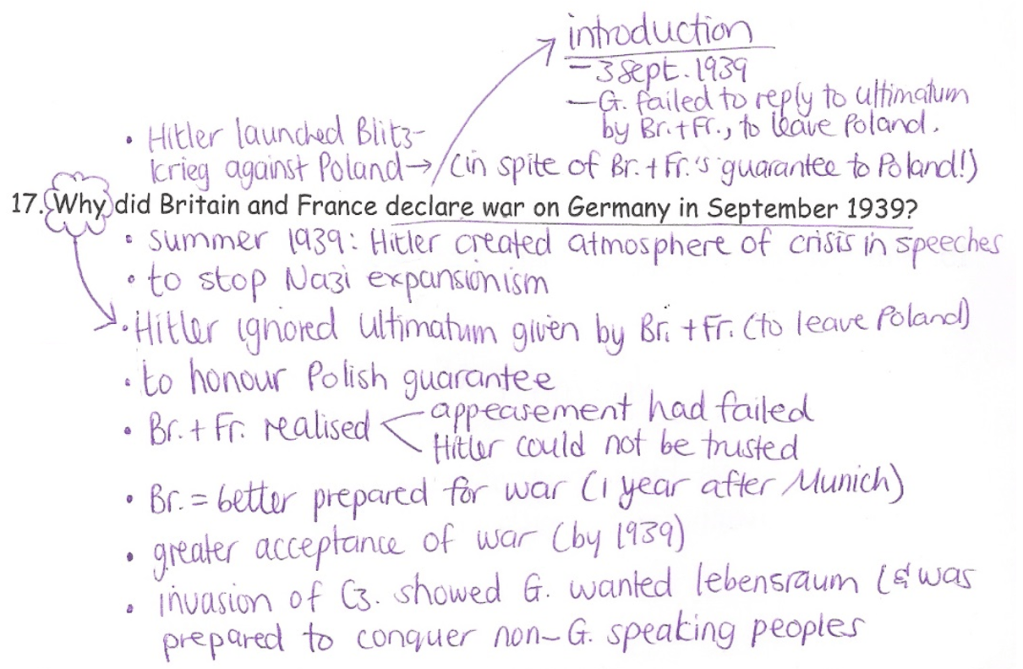 introduction
- 3 Sept. 1939
- G. failed to reply to ultimatum
by Br. + Fr., to leave Poland.
• Hitler launched Blitz-
krieg against Poland → (in spite of Br. + Fr.'s guarantee to Poland!)
17. Why did Britain and France declare war on Germany in September 1939?
• summer 1939: Hitler created atmosphere of crisis in speeches
• to stop Nazi expansionism
• Hitler ignored ultimatum given by Br. + Fr. (to leave Poland)
• to honour Polish guarantee
• Br. + Fr. realised < appeasement had failed
Hitler could not be trusted
• Br. = better prepared for war (1 year after Munich)
• greater acceptance of war (by 1939)
• invasion of Cz. showed G. wanted lebensraum (& was
prepared to conquer non-G. speaking peoples